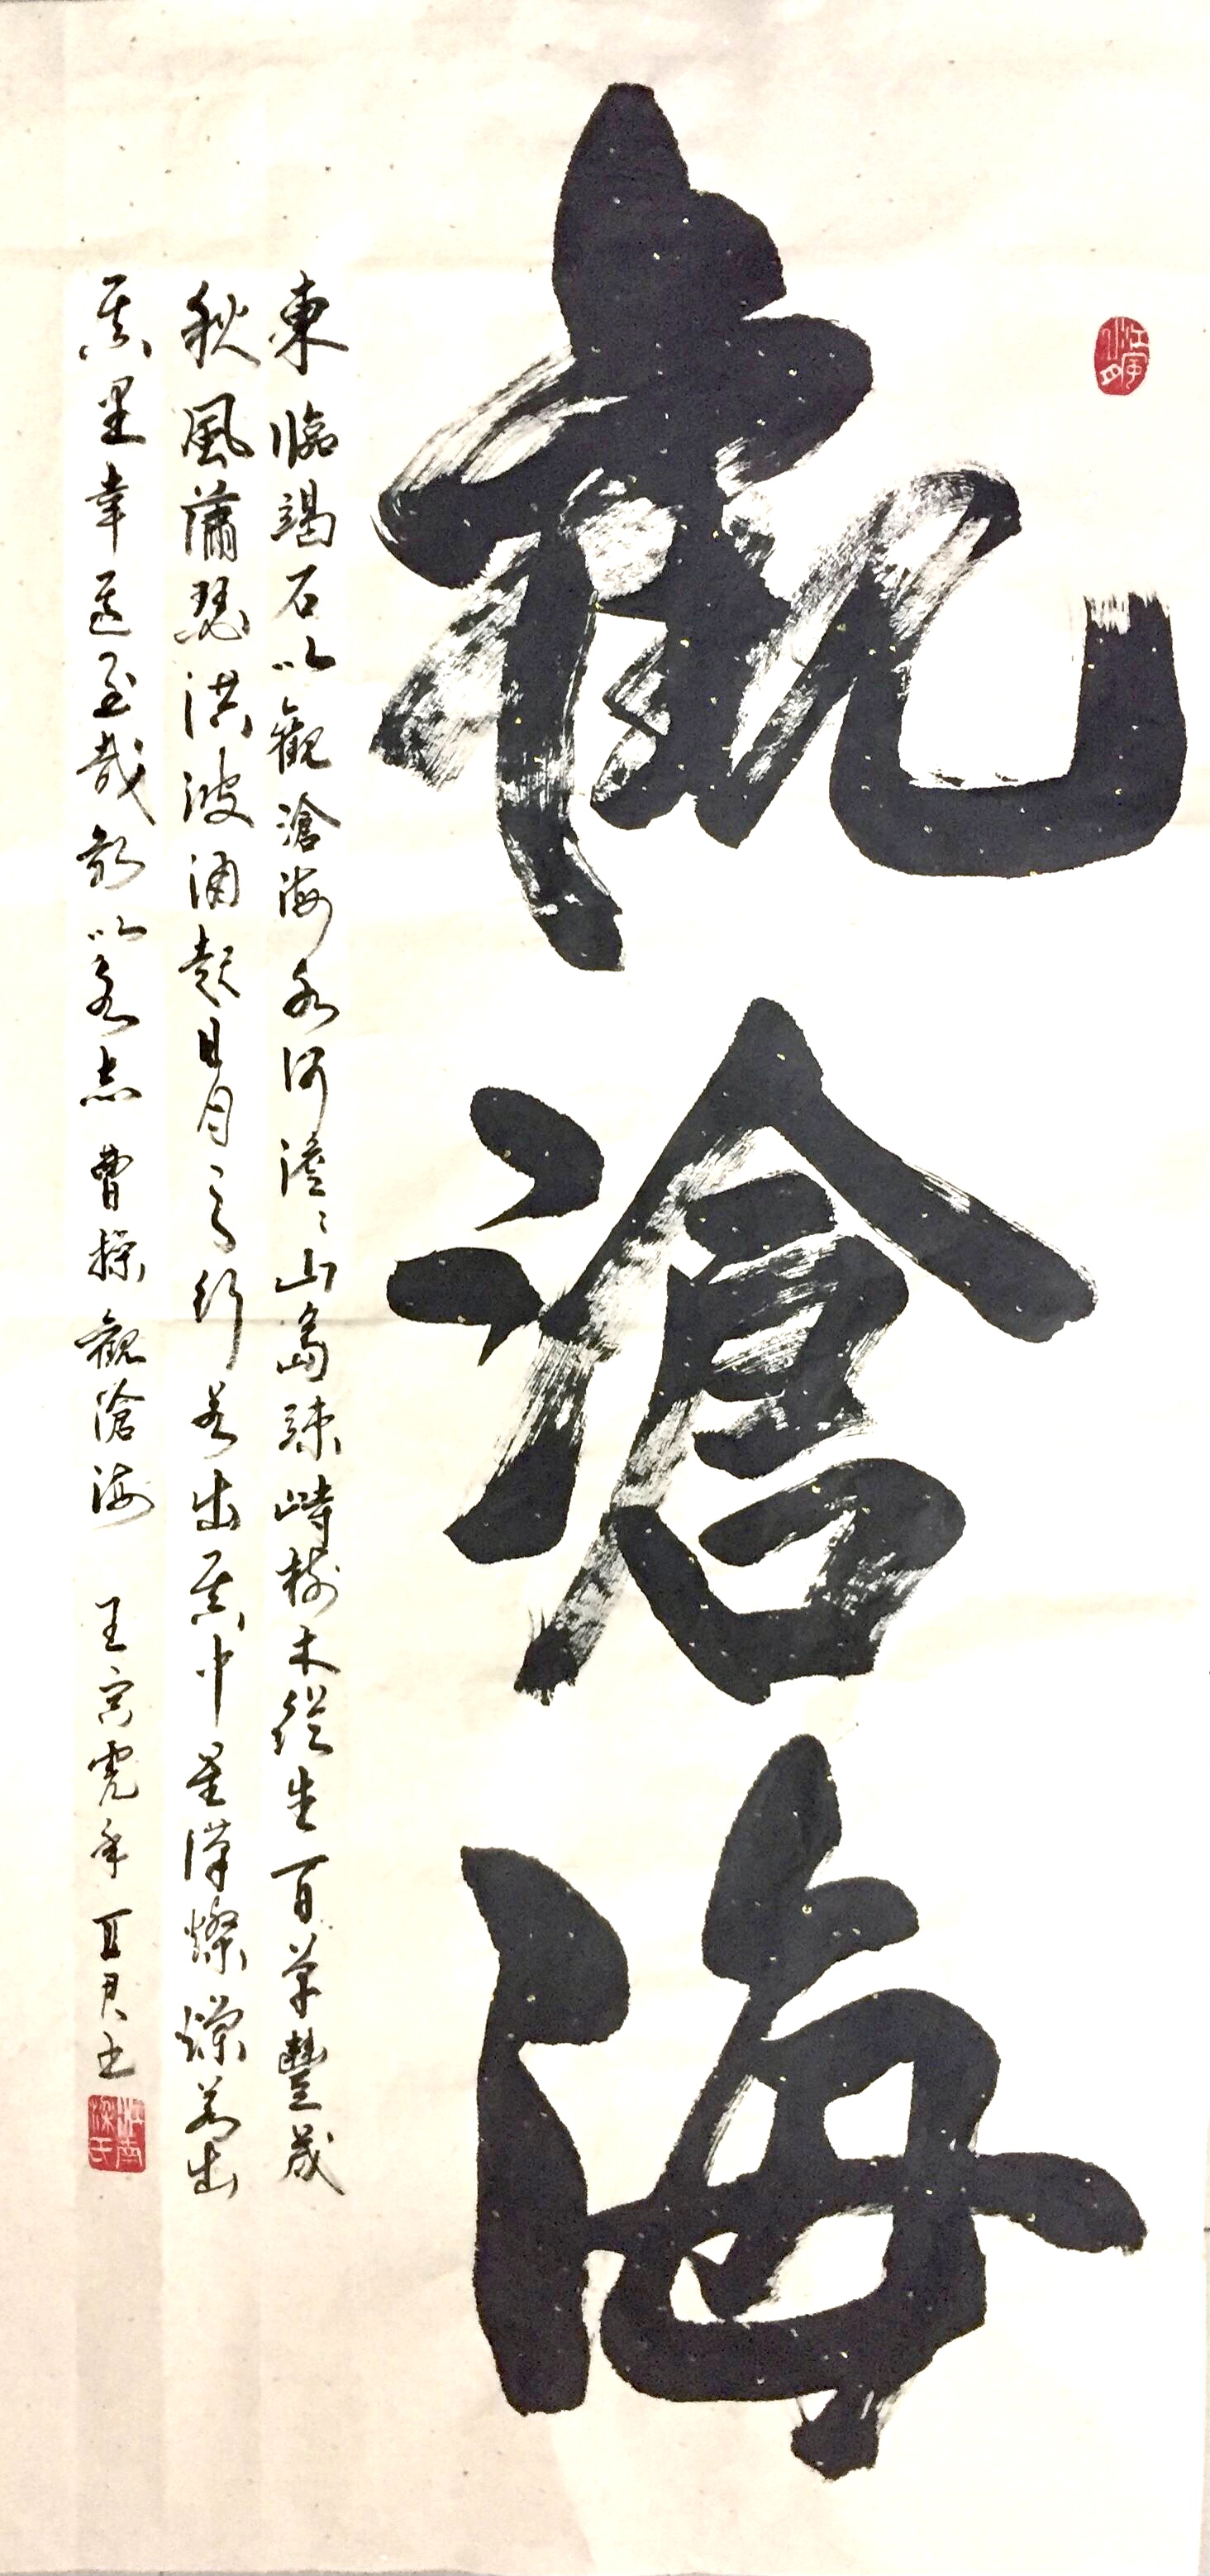 觀滄海
東臨竭石以觀滄海水何澹〻山島竦峙樹木從生百草豐茂
秋風蕭瑟洪波涌起日月之行若出其中星漢燦爛若出
其里幸甚至哉歌以詠志 曹操 觀滄海 壬寅虎年 君书